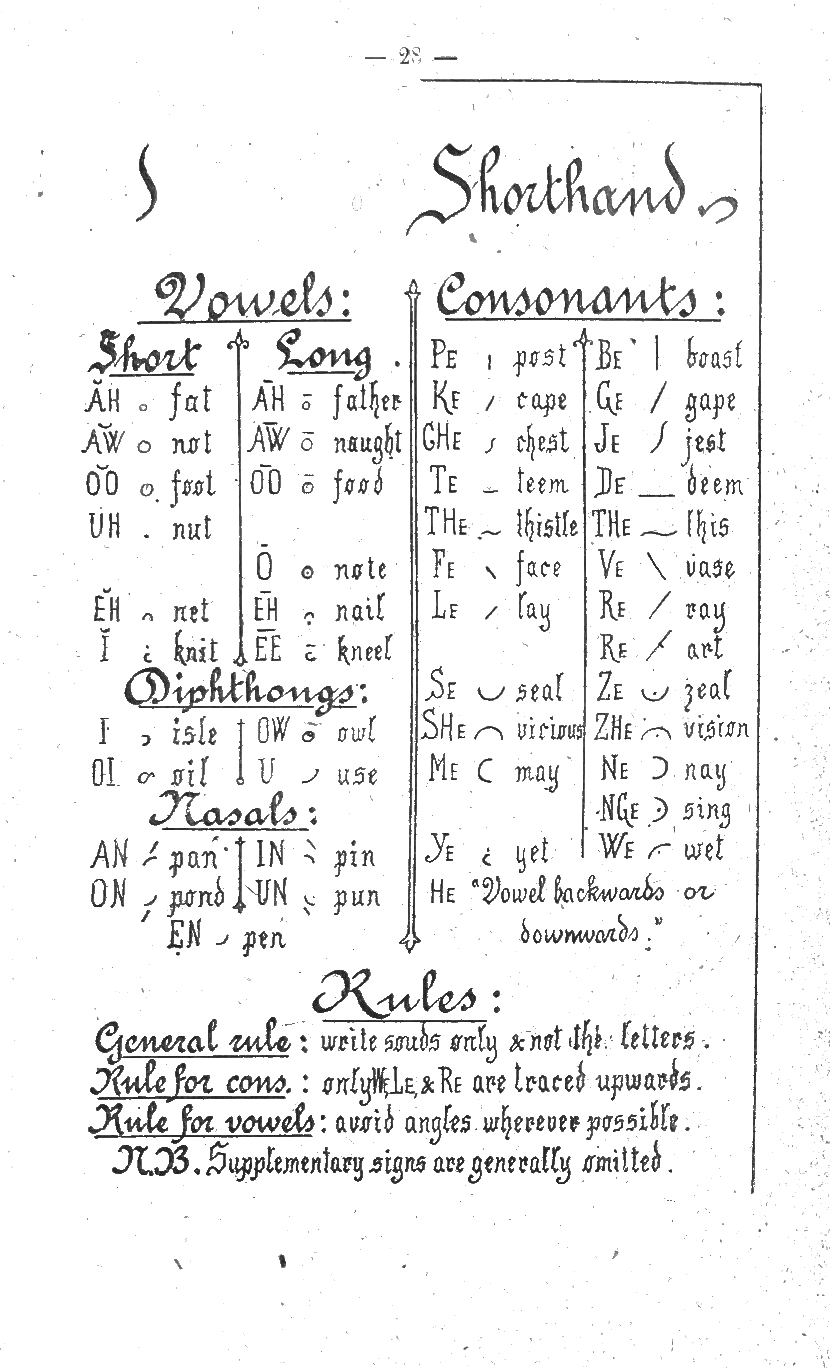 — 28 —
Shorthand
Vowels:
Short Long.
ĂH fat ĀH father
AW̆ not AW̄ naught
ŎŎ foot ŌŌ food
UH nut
Ō note
ĔH net ĒH nail
Ĭ knit ĒĒ kneel
Diphthongs:
I isle OW owl
OI oil U use
Nasals:
AN pan IN pin
ON pond UN pun
EN pen
Consonants:
PE post BE boast
KE cape GE gape
CHE chest JE jest
TE teem DE deem
THE thistle THE this
FE face VE vase
LE lay RE ray
RE art
SE seal ZE zeal
SHE vicious ZHE vision
ME may NE nay
NGE sing
YE yet WE wet
HE "Vowel backwards or
downwards."
Rules:
General rule: write souds only & not the letters.
Rule for cons.: only WE, LE, & RE are traced upwards.
Rule for vowels: avoid angles wherever possible.
N.B. Supplementary signs are generally omitted.